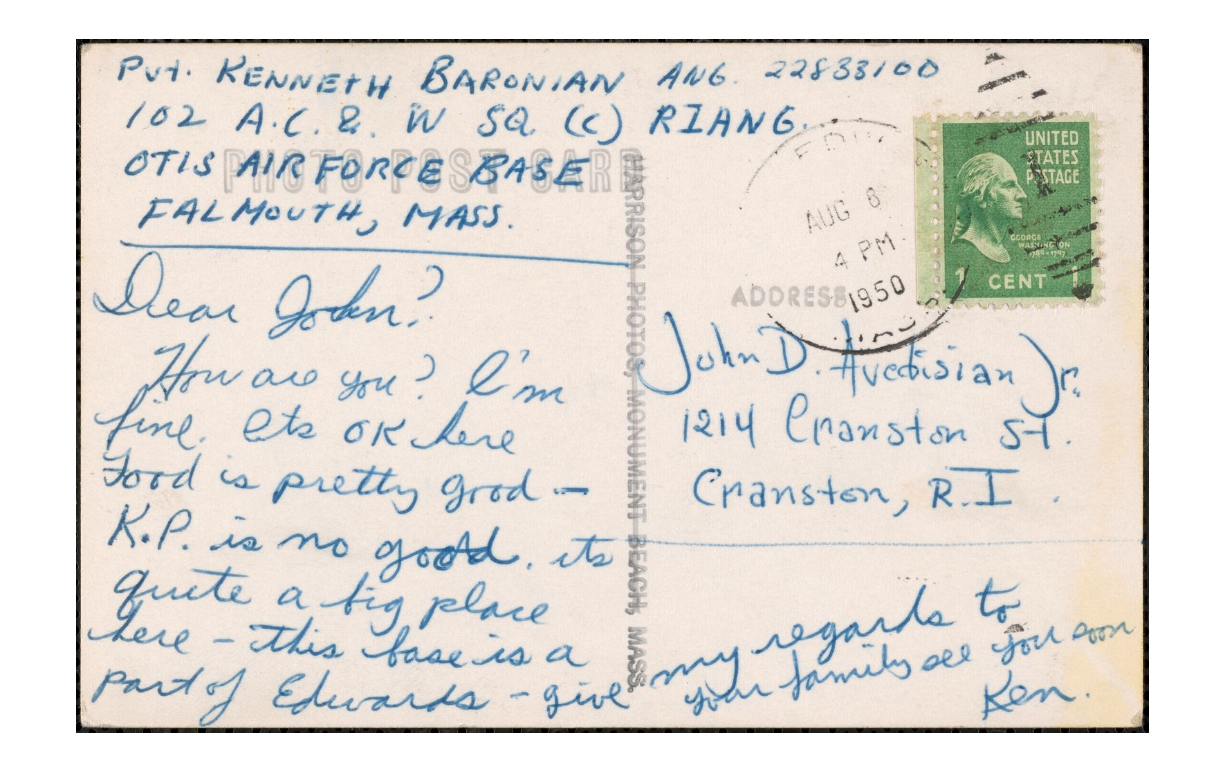 Pvt. KENNETH BARONIAN ANG. 22833100
102 A.C. & W SQ. (C) RIANG.
OTIS AIR FORCE BASE
FALMOUTH, MASS.
PHOTO POST CARD
Dear John?
How are you? I'm
fine. Its OK here
Food is pretty good –
K.P. is no good. its
quite a big place
here – this base is a
part of Edwards – give
my regards to
your family see you soon
Ken.
HARRISON PHOTOS, MONUMENT BEACH, MASS.
AUG 8
4 PM
1950
MASS.
UNITED
STATES
POSTAGE
GEORGE
WASHINGTON
1789-1797
1 CENT 1
ADDRESS
John D. Avedisian Jr.
1214 Cranston St.
Cranston, R.I.